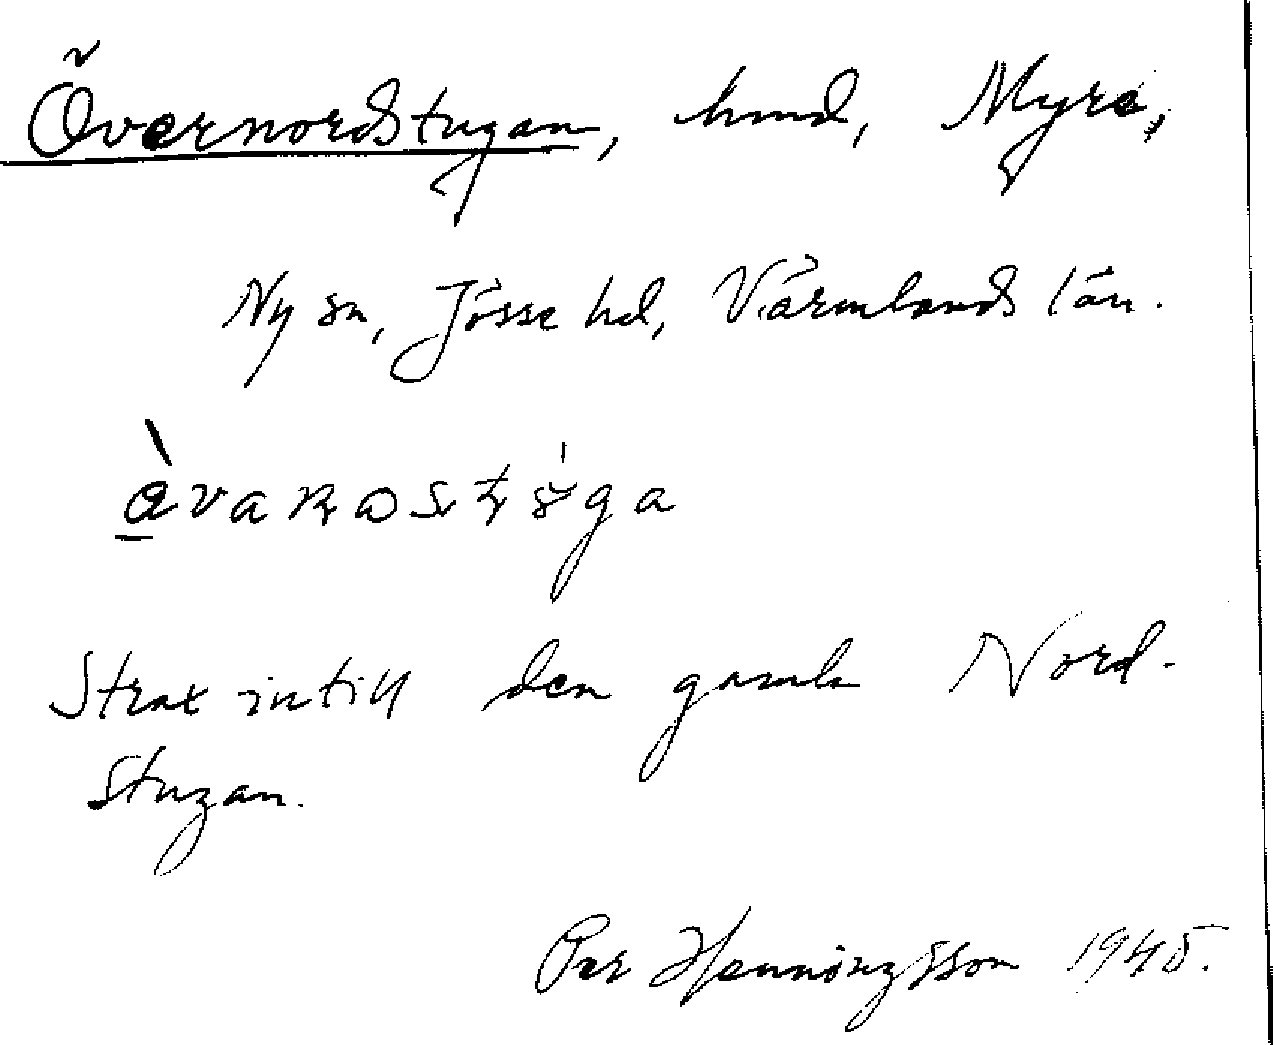 Övernordstugan, hmd, Myre,
Ny sn, Jösse hd, Värmlands län.
Strax intill den gamla Nord-
stugan.
Per Henningsson 1945.